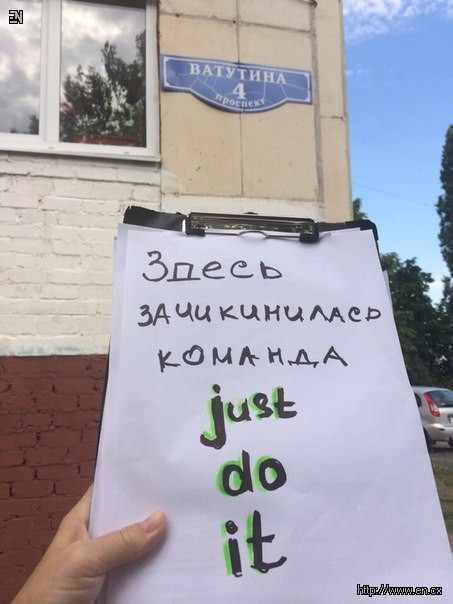 EN
ВАТУТИНА
4
проспект
Здесь
зачикинилась
команда
just
do
it
http://www.en.cx